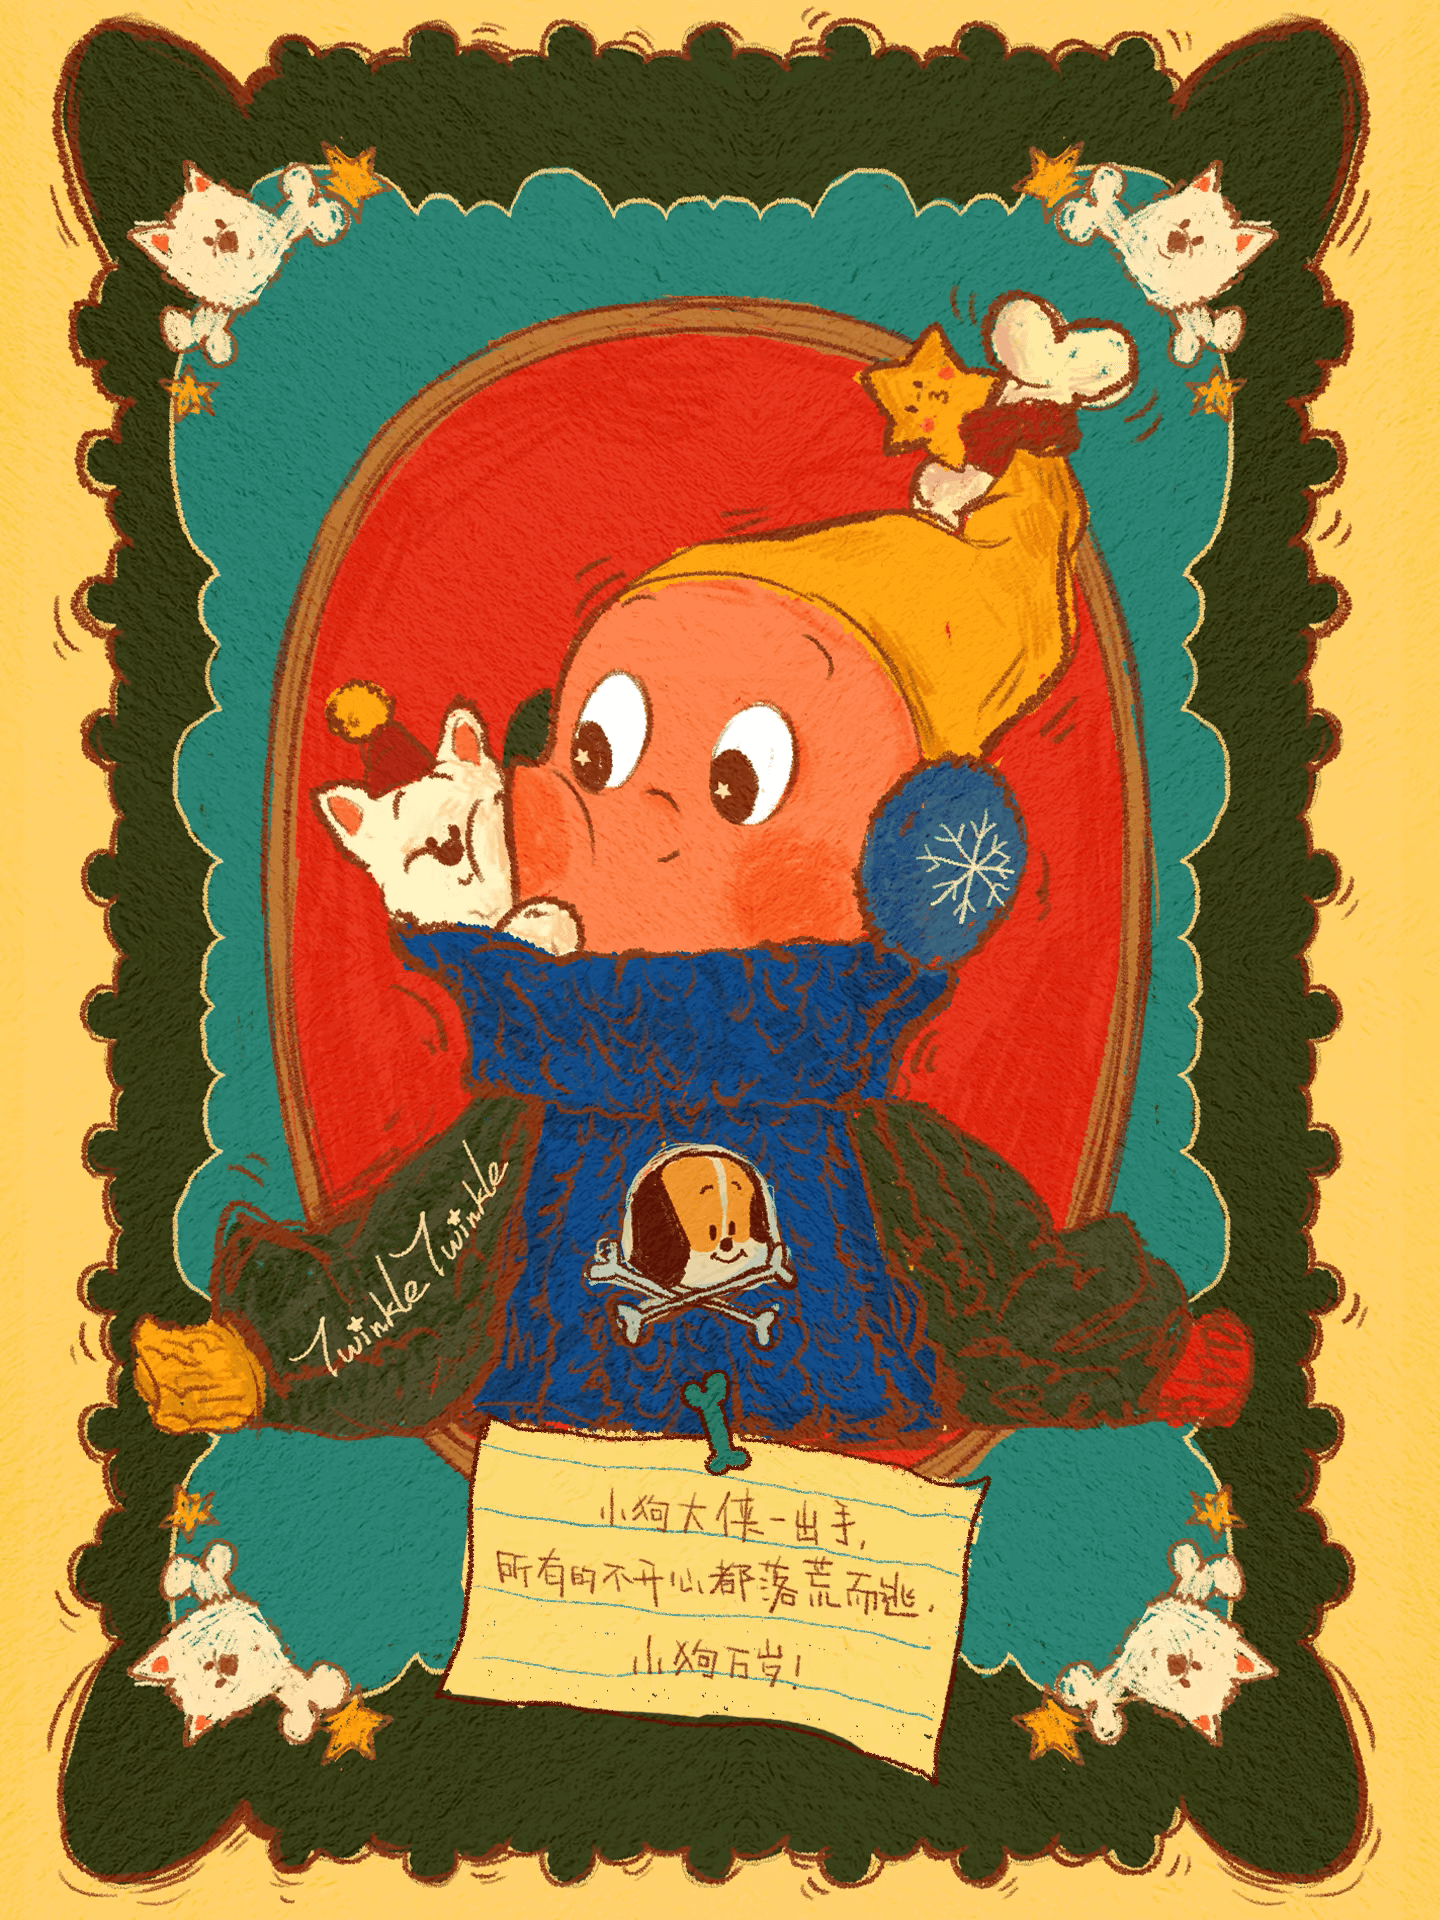 Twinkle Twinkle
小狗大侠一出手,
所有的不开心都落荒而逃.
小狗万岁!